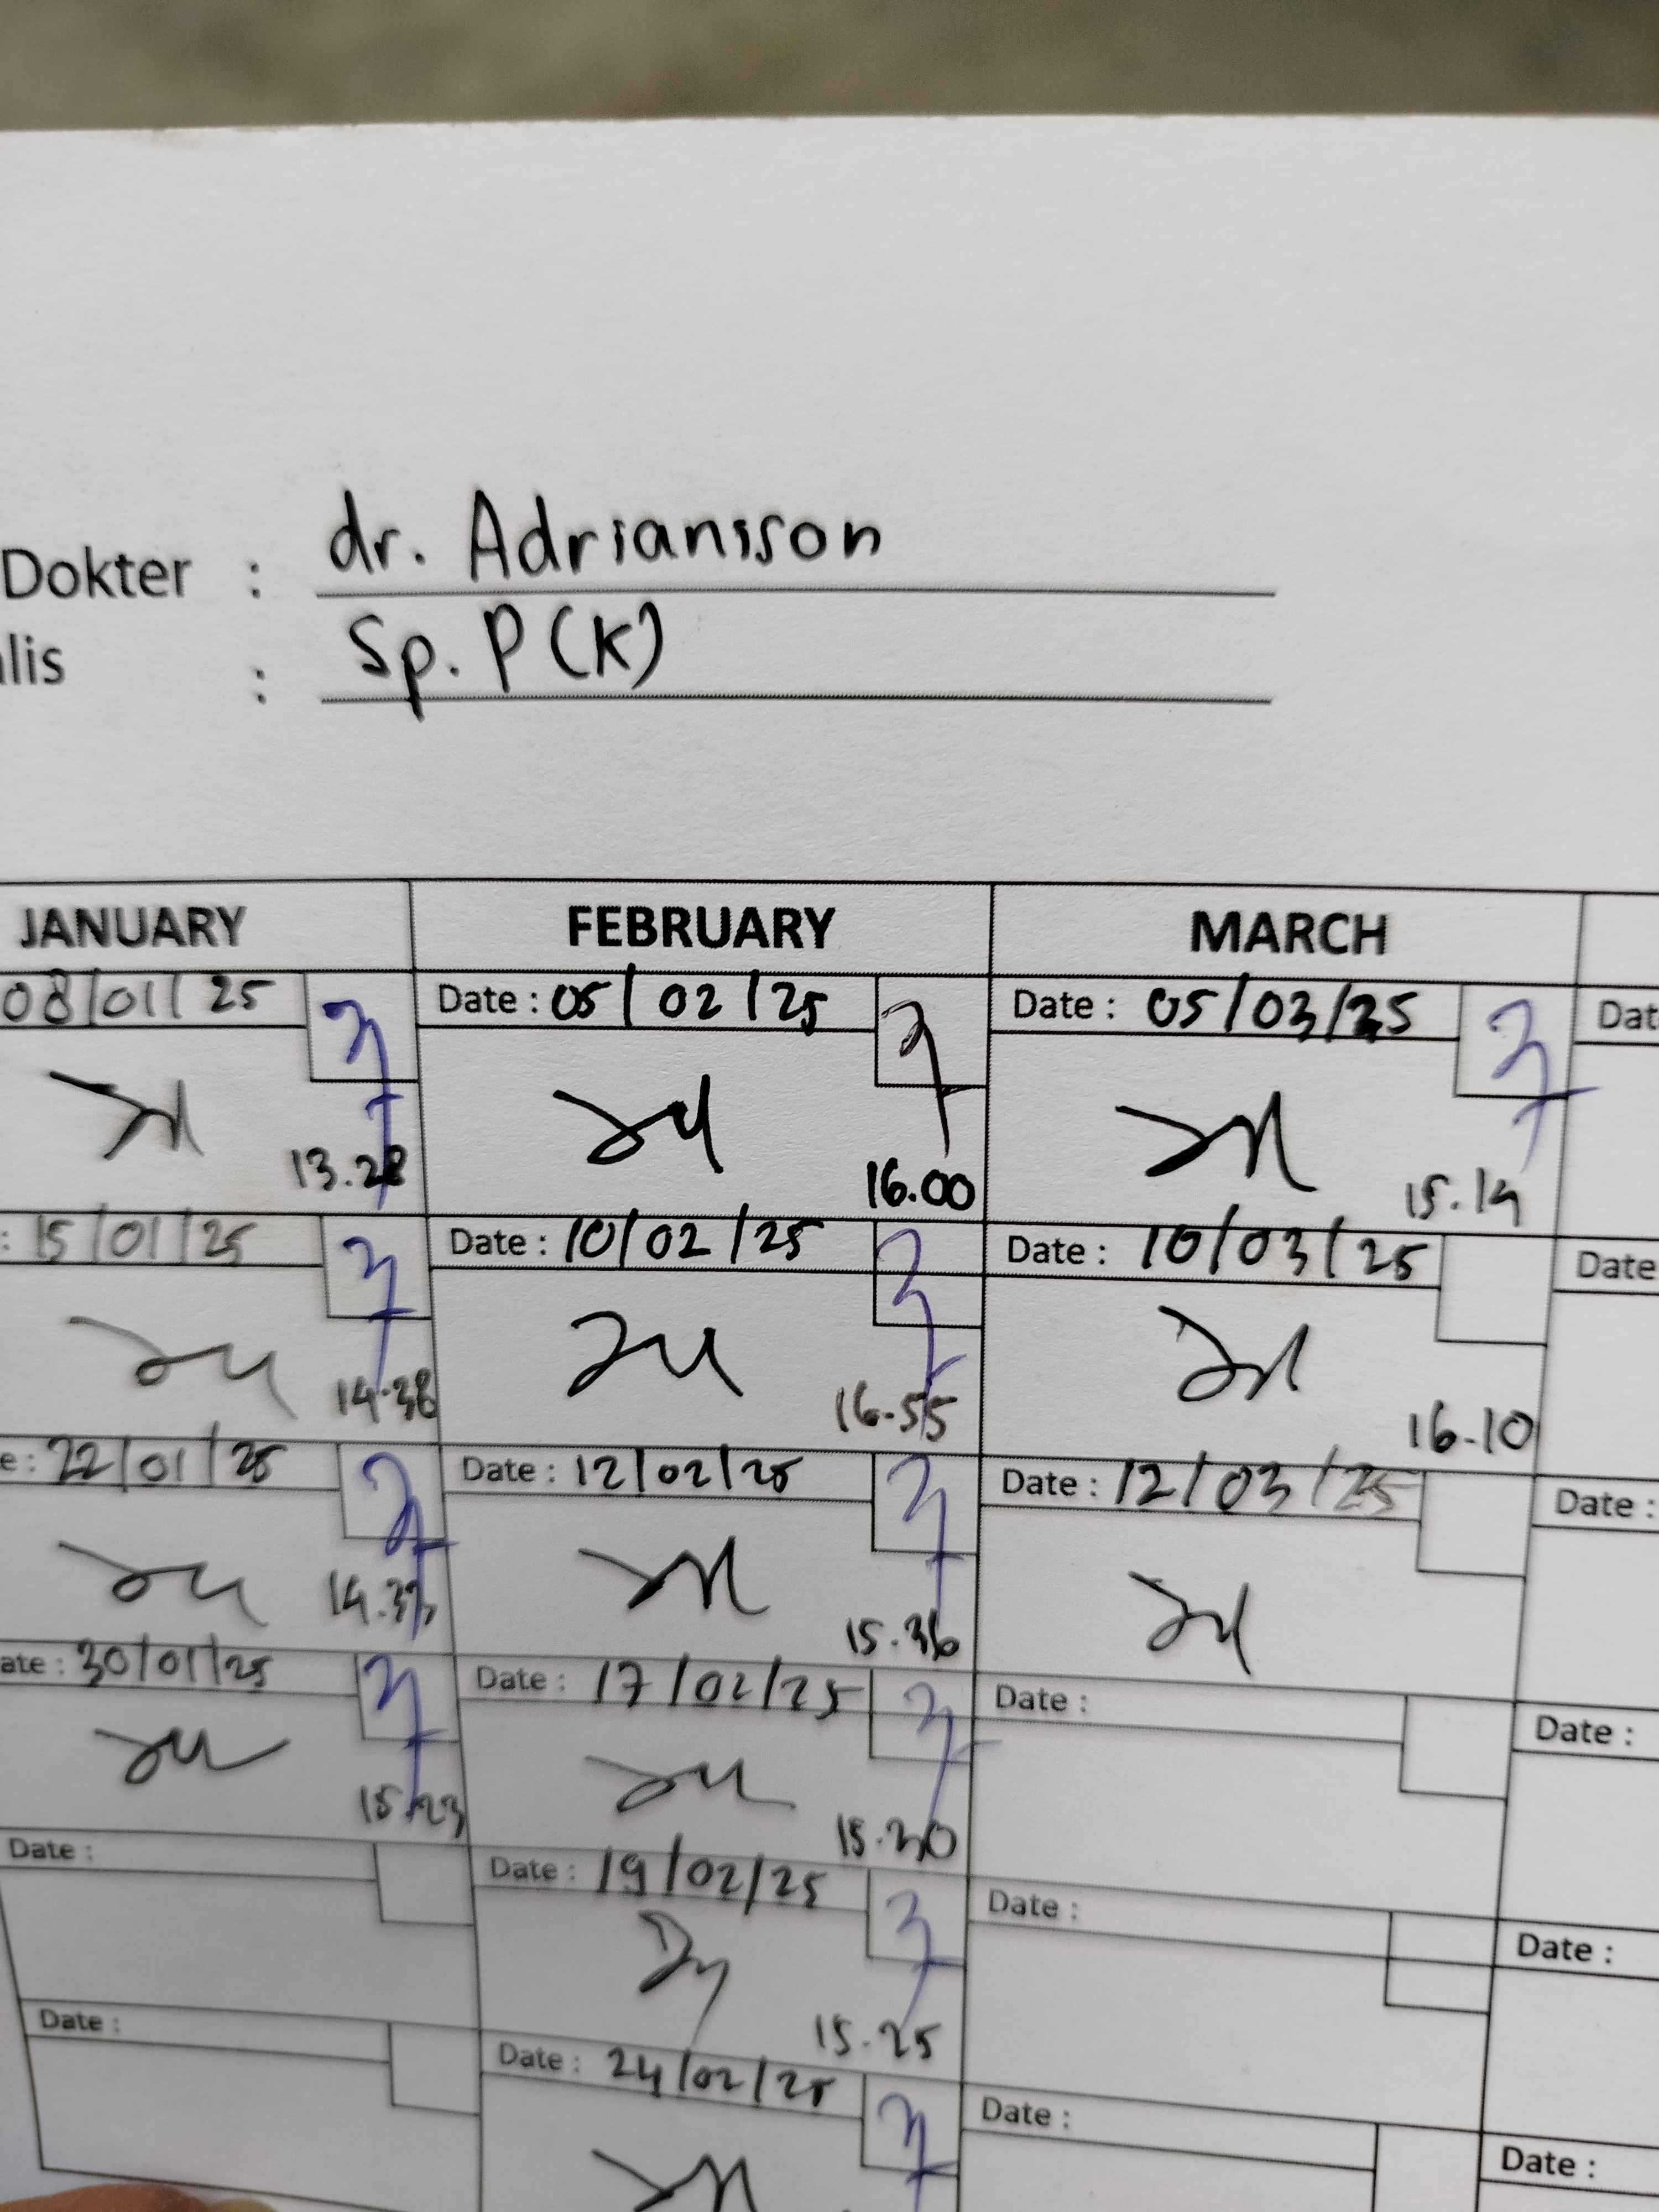 Dokter : dr. Adriansson
lis : Sp. P (K)
JANUARY FEBRUARY MARCH
08/01/25 Date : 05/02/25 Date : 05/03/25 Dat
13.28 16.00 15.14
: 15/01/25 Date : 10/02/25 Date : 10/03/25 Date
14.38 16.55 16.10
e : 22/01/25 Date : 12/02/25 Date : 12/03/25 Date :
14.33 15.36
ate : 30/01/25 Date : 17/02/25 Date : Date :
15.23 15.30
Date : Date : 19/02/25 Date : Date :
15.25
Date : Date : 24/02/25 Date : Date :